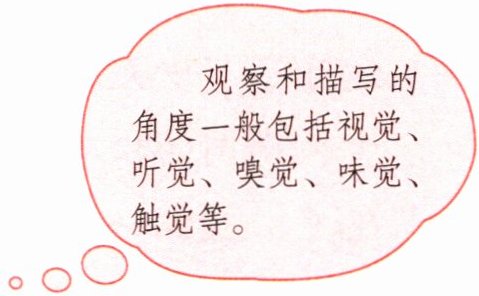 观察和描写的
角度一般包括视觉、
听觉、嗅觉、味觉、
触觉等。